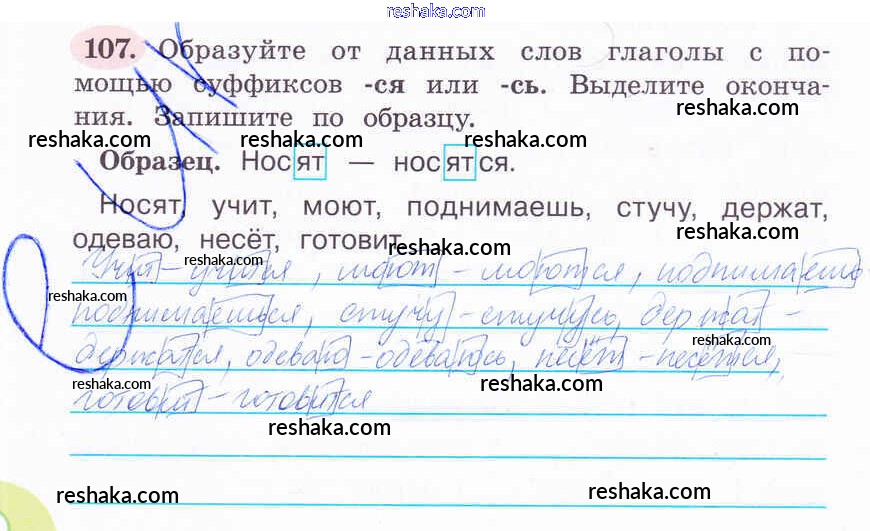 reshaka.com
107. Образуйте от данных слов глаголы с по-
мощью суффиксов -ся или -сь. Выделите оконча-
reshaka.com
ния. Запишите по образцу.
reshaka.com reshaka.com reshaka.com
Образец. Носят — носятся.
reshaka.com
Носят, учит, моют, поднимаешь, стучу, держат,
одеваю, несёт, готовит.
reshaka.com
Учит - учится, моют - моются, поднимаешь-
reshaka.com reshaka.com
поднимаешься, стучу - стучусь, держат -
reshaka.com
держатся, одеваю - одеваюсь, несёт - несётся,
reshaka.com reshaka.com
готовит - готовится
reshaka.com
reshaka.com
reshaka.com reshaka.com